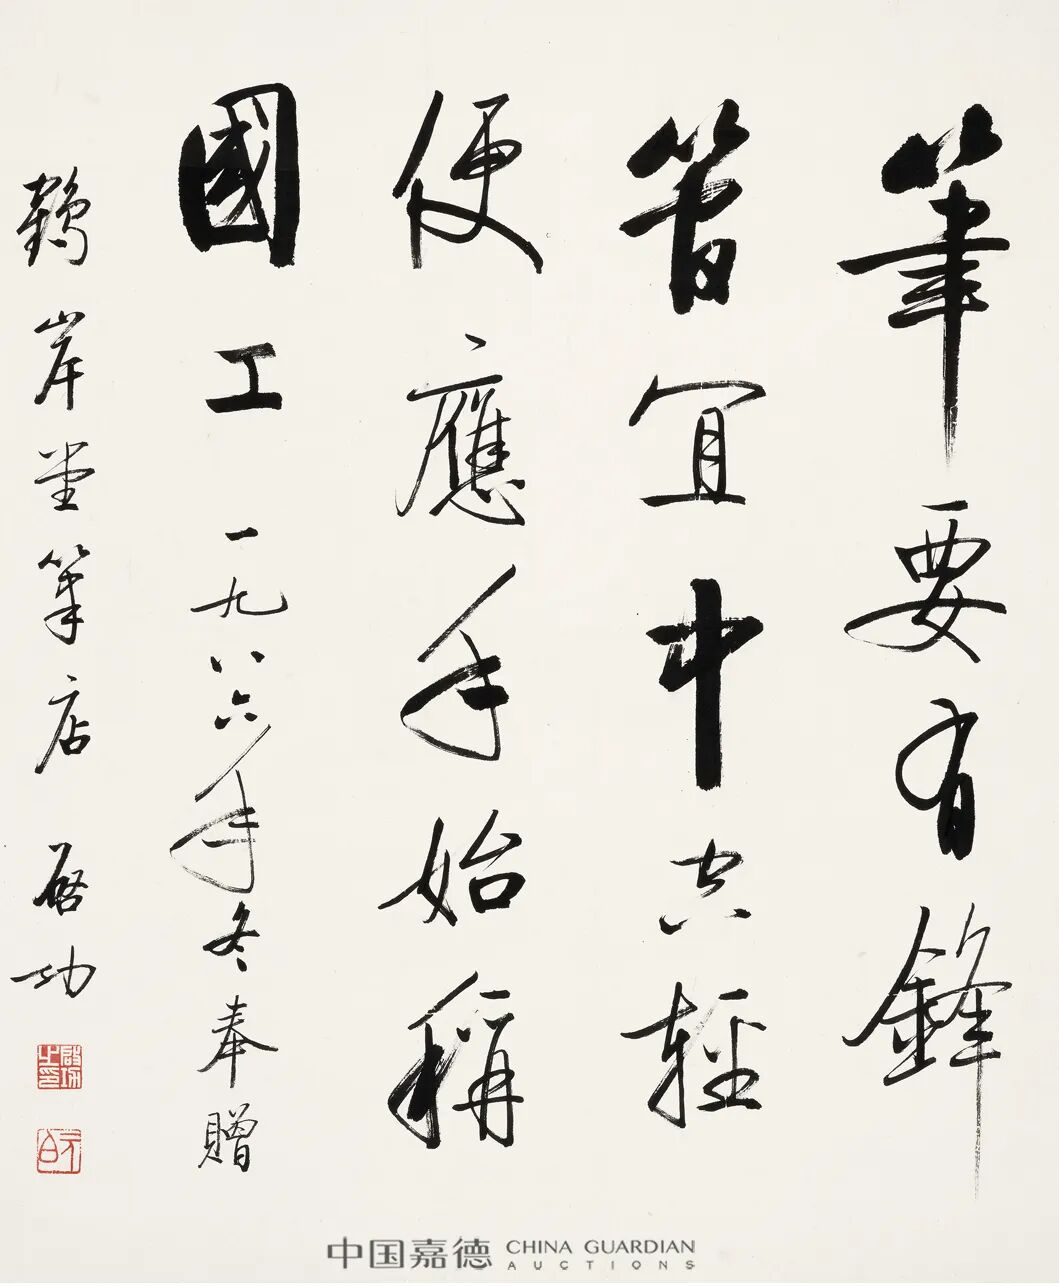 筆要有鋒
管宜中空輕
便應手始稱
國工 一九八六年冬奉贈
鶴岸堂筆店 啓功
啓功之印
元白
中国嘉德 CHINA GUARDIAN AUCTIONS